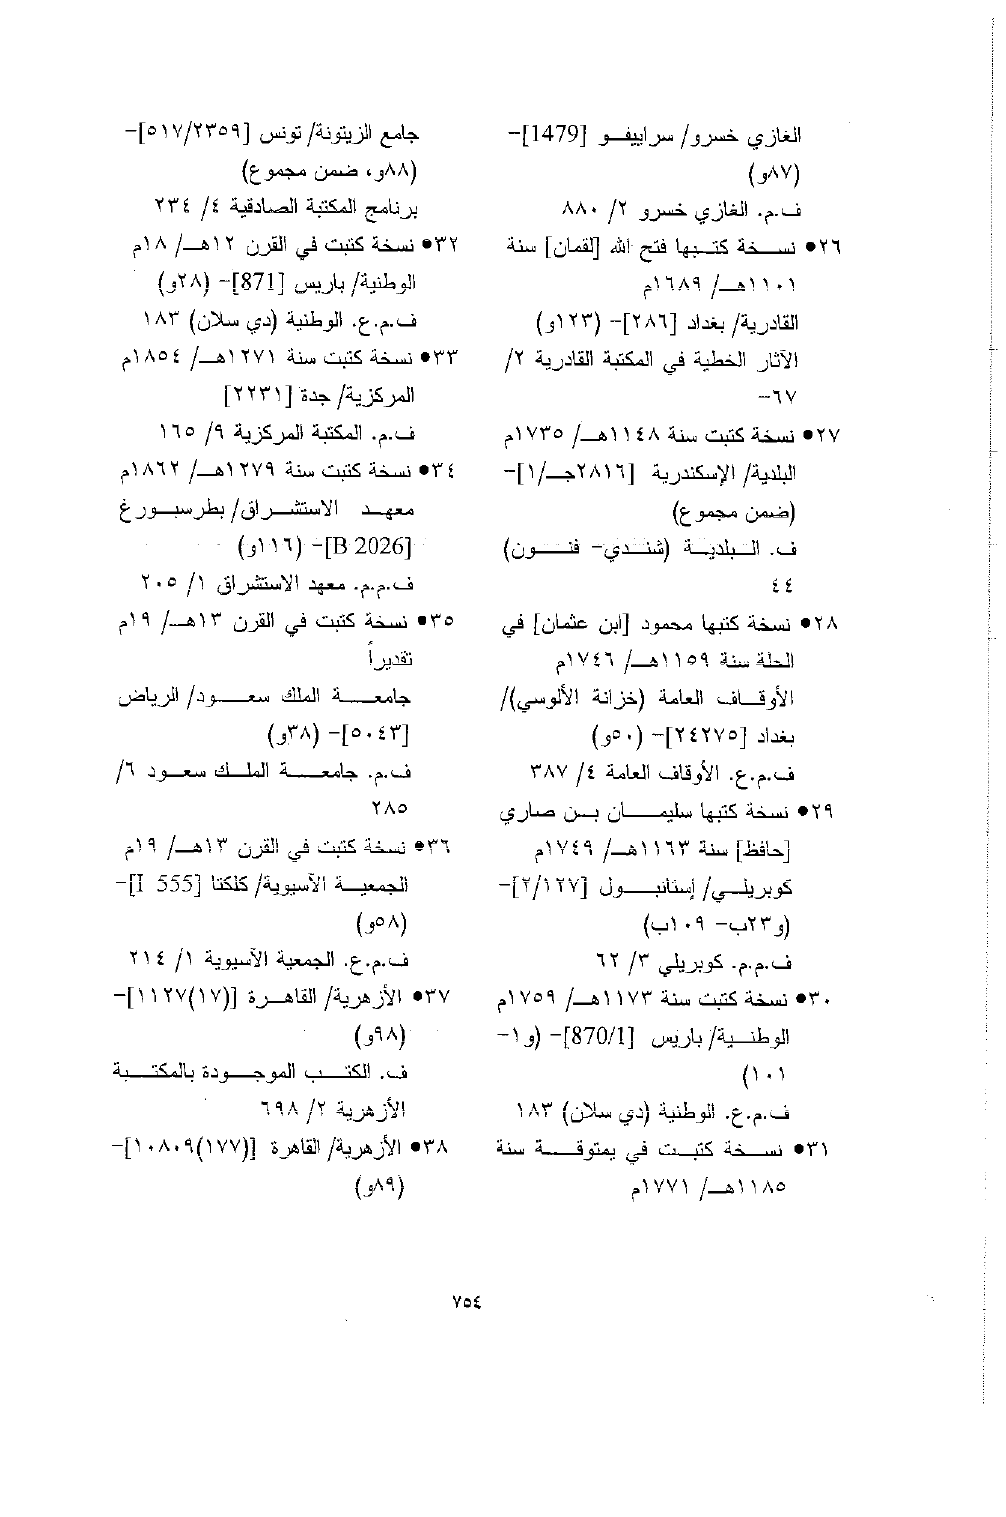 الغازي خسرو/ سراييفو [1479]-
(٨٧و)
ف.م. الغازي خسرو ٢/ ٨٨٠
٢٦• نسخة كتبها فتح الله [لقمان] سنة
١١٠١هـ/ ١٦٨٩م
القادرية/ بغداد [٢٨٦]- (١٢٣و)
الآثار الخطية في المكتبة القادرية ٢/
٦٧-
٢٧• نسخة كتبت سنة ١١٤٨هـ/ ١٧٣٥م
البلدية/ الإسكندرية [٢٨١٦جـ/١]-
(ضمن مجموع)
ف. البلدية (شندي- فنون)
٤٤
٢٨• نسخة كتبها محمود [ابن عثمان] في
الحلة سنة ١١٥٩هـ/ ١٧٤٦م
الأوقاف العامة (خزانة الألوسي)/
بغداد [٢٤٢٧٥]- (٥٠و)
ف.م.ع. الأوقاف العامة ٤/ ٣٨٧
٢٩• نسخة كتبها سليمان بن صاري
[حافظ] سنة ١١٦٣هـ/ ١٧٤٩م
كوبريلي/ إستانبول [٢/١٢٧]-
(و٢٣ب- ١٠٩ب)
ف.م.م. كوبريلي ٣/ ٦٢
٣٠• نسخة كتبت سنة ١١٧٣هـ/ ١٧٥٩م
الوطنية/ باريس [870/1]- (و١-
١٠١)
ف.م.ع. الوطنية (دي سلان) ١٨٣
٣١• نسخة كتبت في يمتوقة سنة
١١٨٥هـ/ ١٧٧١م
جامع الزيتونة/ تونس [٥١٧/٢٣٥٩]-
(٨٨و، ضمن مجموع)
برنامج المكتبة الصادقية ٤/ ٢٣٤
٣٢• نسخة كتبت في القرن ١٢هـ/ ١٨م
الوطنية/ باريس [871]- (٢٨و)
ف.م.ع. الوطنية (دي سلان) ١٨٣
٣٣• نسخة كتبت سنة ١٢٧١هـ/ ١٨٥٤م
المركزية/ جدة [٢٢٣١]
ف.م. المكتبة المركزية ٩/ ١٦٥
٣٤• نسخة كتبت سنة ١٢٧٩هـ/ ١٨٦٢م
معهد الاستشراق/ بطرسبورغ
[B 2026]- (١١٦و)
ف.م.م. معهد الاستشراق ١/ ٢٠٥
٣٥• نسخة كتبت في القرن ١٣هـ/ ١٩م
تقديراً
جامعة الملك سعود/ الرياض
[٥٠٤٣]- (٣٨و)
ف.م. جامعة الملك سعود ٦/
٢٨٥
٣٦• نسخة كتبت في القرن ١٣هـ/ ١٩م
الجمعية الآسيوية/ كلكتا [I 555]-
(٥٨و)
ف.م.ع. الجمعية الآسيوية ١/ ٢١٤
٣٧• الأزهرية/ القاهرة [(١٧)١١٢٧]-
(٩٨و)
ف. الكتب الموجودة بالمكتبة
الأزهرية ٢/ ٦٩٨
٣٨• الأزهرية/ القاهرة [(١٧٧)١٠٨٠٩]-
(٨٩و)
٧٥٤